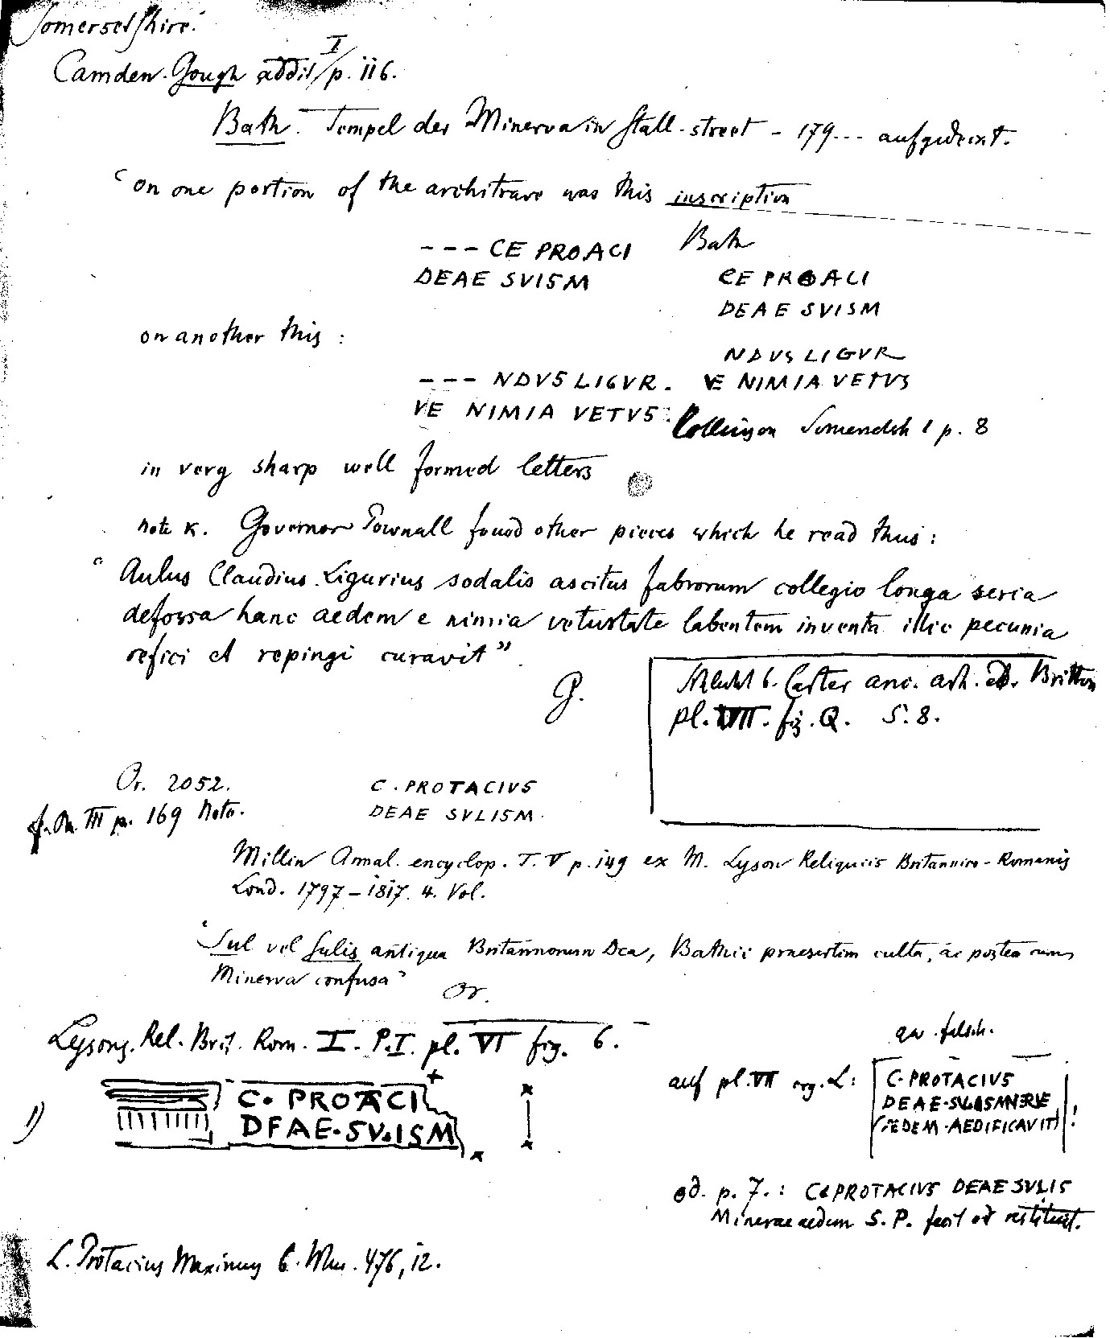 Somersetshire.
Camden. Gough addit I/p. 116.
Bath. Tempel der Minerva in Stall-street - 179...
"on one portion of the architrave was this inscription
--- CE PROACI
DEAE SVISM
Bath
CE PROACI
DEAE SVISM
on another this:
--- NDVS LIGVR.
VE NIMIA VETVS:
NDVS LIGVR
VE NIMIA VETVS
Collinson 1 p. 8
in very sharp well formed letters
note K. Governor Pownall found other pieces which he read thus:
"Aulus Claudius Ligurius sodalis ascitus fabrorum collegio longa seria
defossa hanc aedem e nimia vetustate labentem inventa illic pecunia
refici et repingi curavit".
G.
Carter anc. Britton
pl. VII. fig. Q. S. 8.
Or. 2052.
III p. 169 Note.
C. PROTACIVS
DEAE SVLISM.
Millin Annal. encyclop. T. V p. 149 ex M. Lysons Reliquiis Britannico-Romanis
Lond. 1797-1817. 4. Vol.
"Sul vel Sulis antiqua Britannorum Dea, Bathii praesertim culta, ac postea cum
Minerva confusa"
Or.
Lysons. Rel. Brit. Rom. I. P. I. pl. VI fig. 6.
1)
C. PROACI
DEAE.SV.ISM
falsch.
auf pl. VII erg. L:
C. PROTACIVS
DEAE-SVLISMINERVE
AEDEM-AEDIFICAVIT
!
p. 7.: C PROTACIVS DEAE SVLIS
Minervae aedem S. P. fecit et restituit.
L. Protacius Maximus 476, 12.